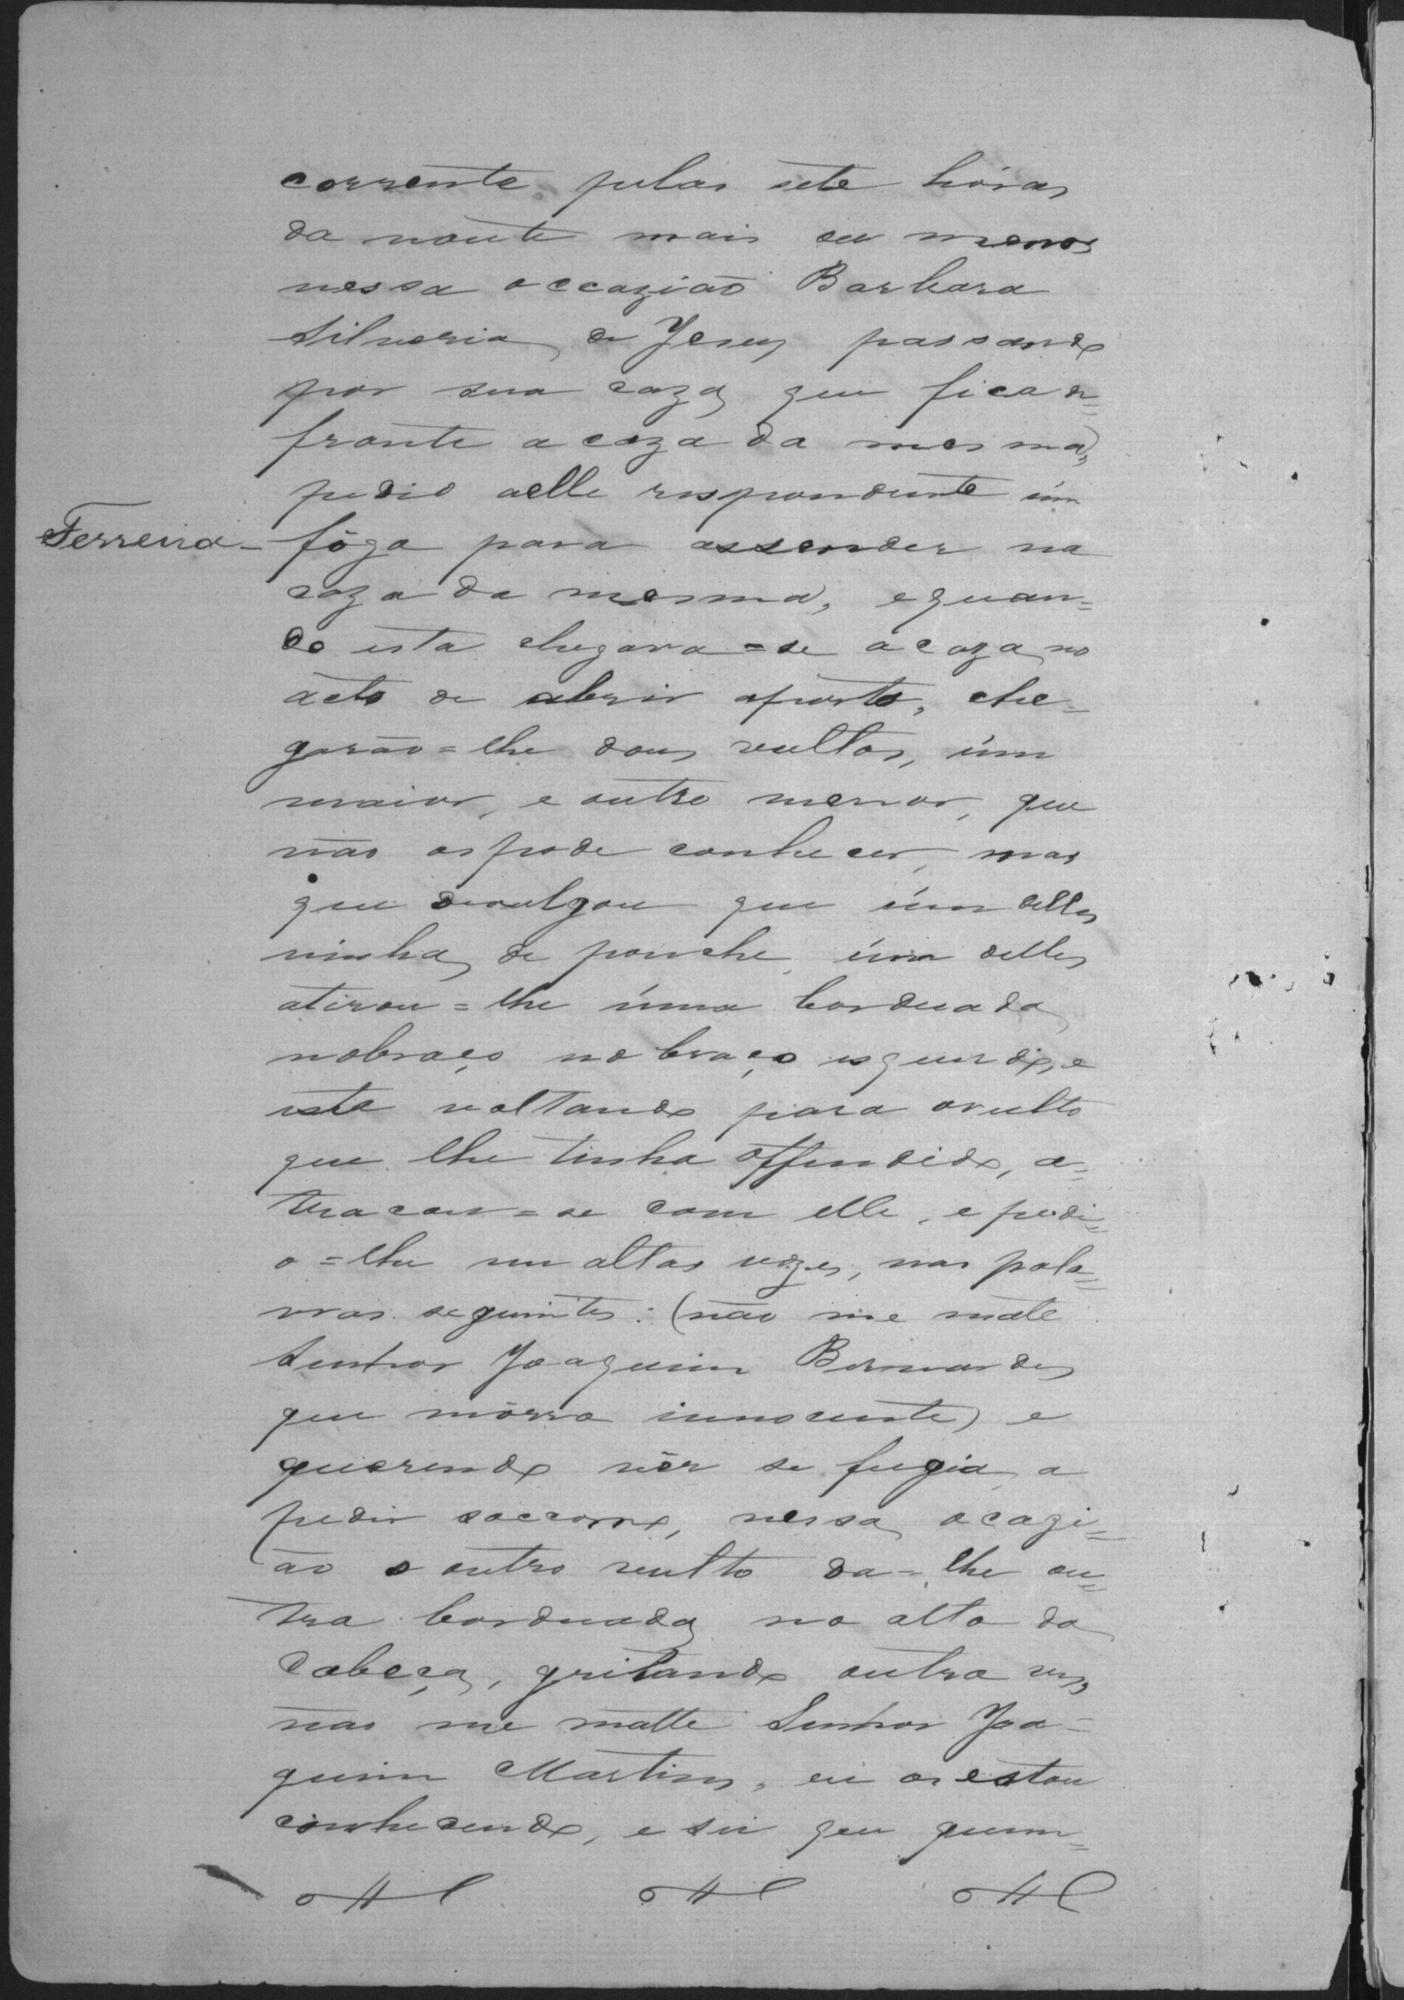 corrente pelas sete hóras
da noute mais ou menos
nessa occazião Barbara
Silveria de Jesus passando
por sua caza que fica de=
fronte a caza da mesma,
pedio aelle respondente úm
Ferreira - fôgo para assender na
caza da mesma, equan=
do esta chegava=se a caza no
acto de abrir aporta, che=
garão=lhe dous vultos, úm
maior, e outro menor, que
não ospode conhecer, mas
que devulgou que úm delles
vinha de ponche, úm delles
atirou=lhe úma borduada
nobraço no braço esquerdo, e
esta voltando para ovulto
que lhe tinha offendido, a=
tracou=se com elle, e pedi=
o=lhe em altas vozes, nas pala=
vras seguintes: (não me mate
Senhor Joaquim Bernardes
que môrro innocente) e
querendo vêr se fugia a
pedir soccorro, nessa ocazi=
ão o outro vulto da=lhe ou=
tra borduada no alto da
Cabeça, gritando outra vez,
não me matte Senhor Joa=
quim Martins, eu os estou
conhecendo, e sei que quem=